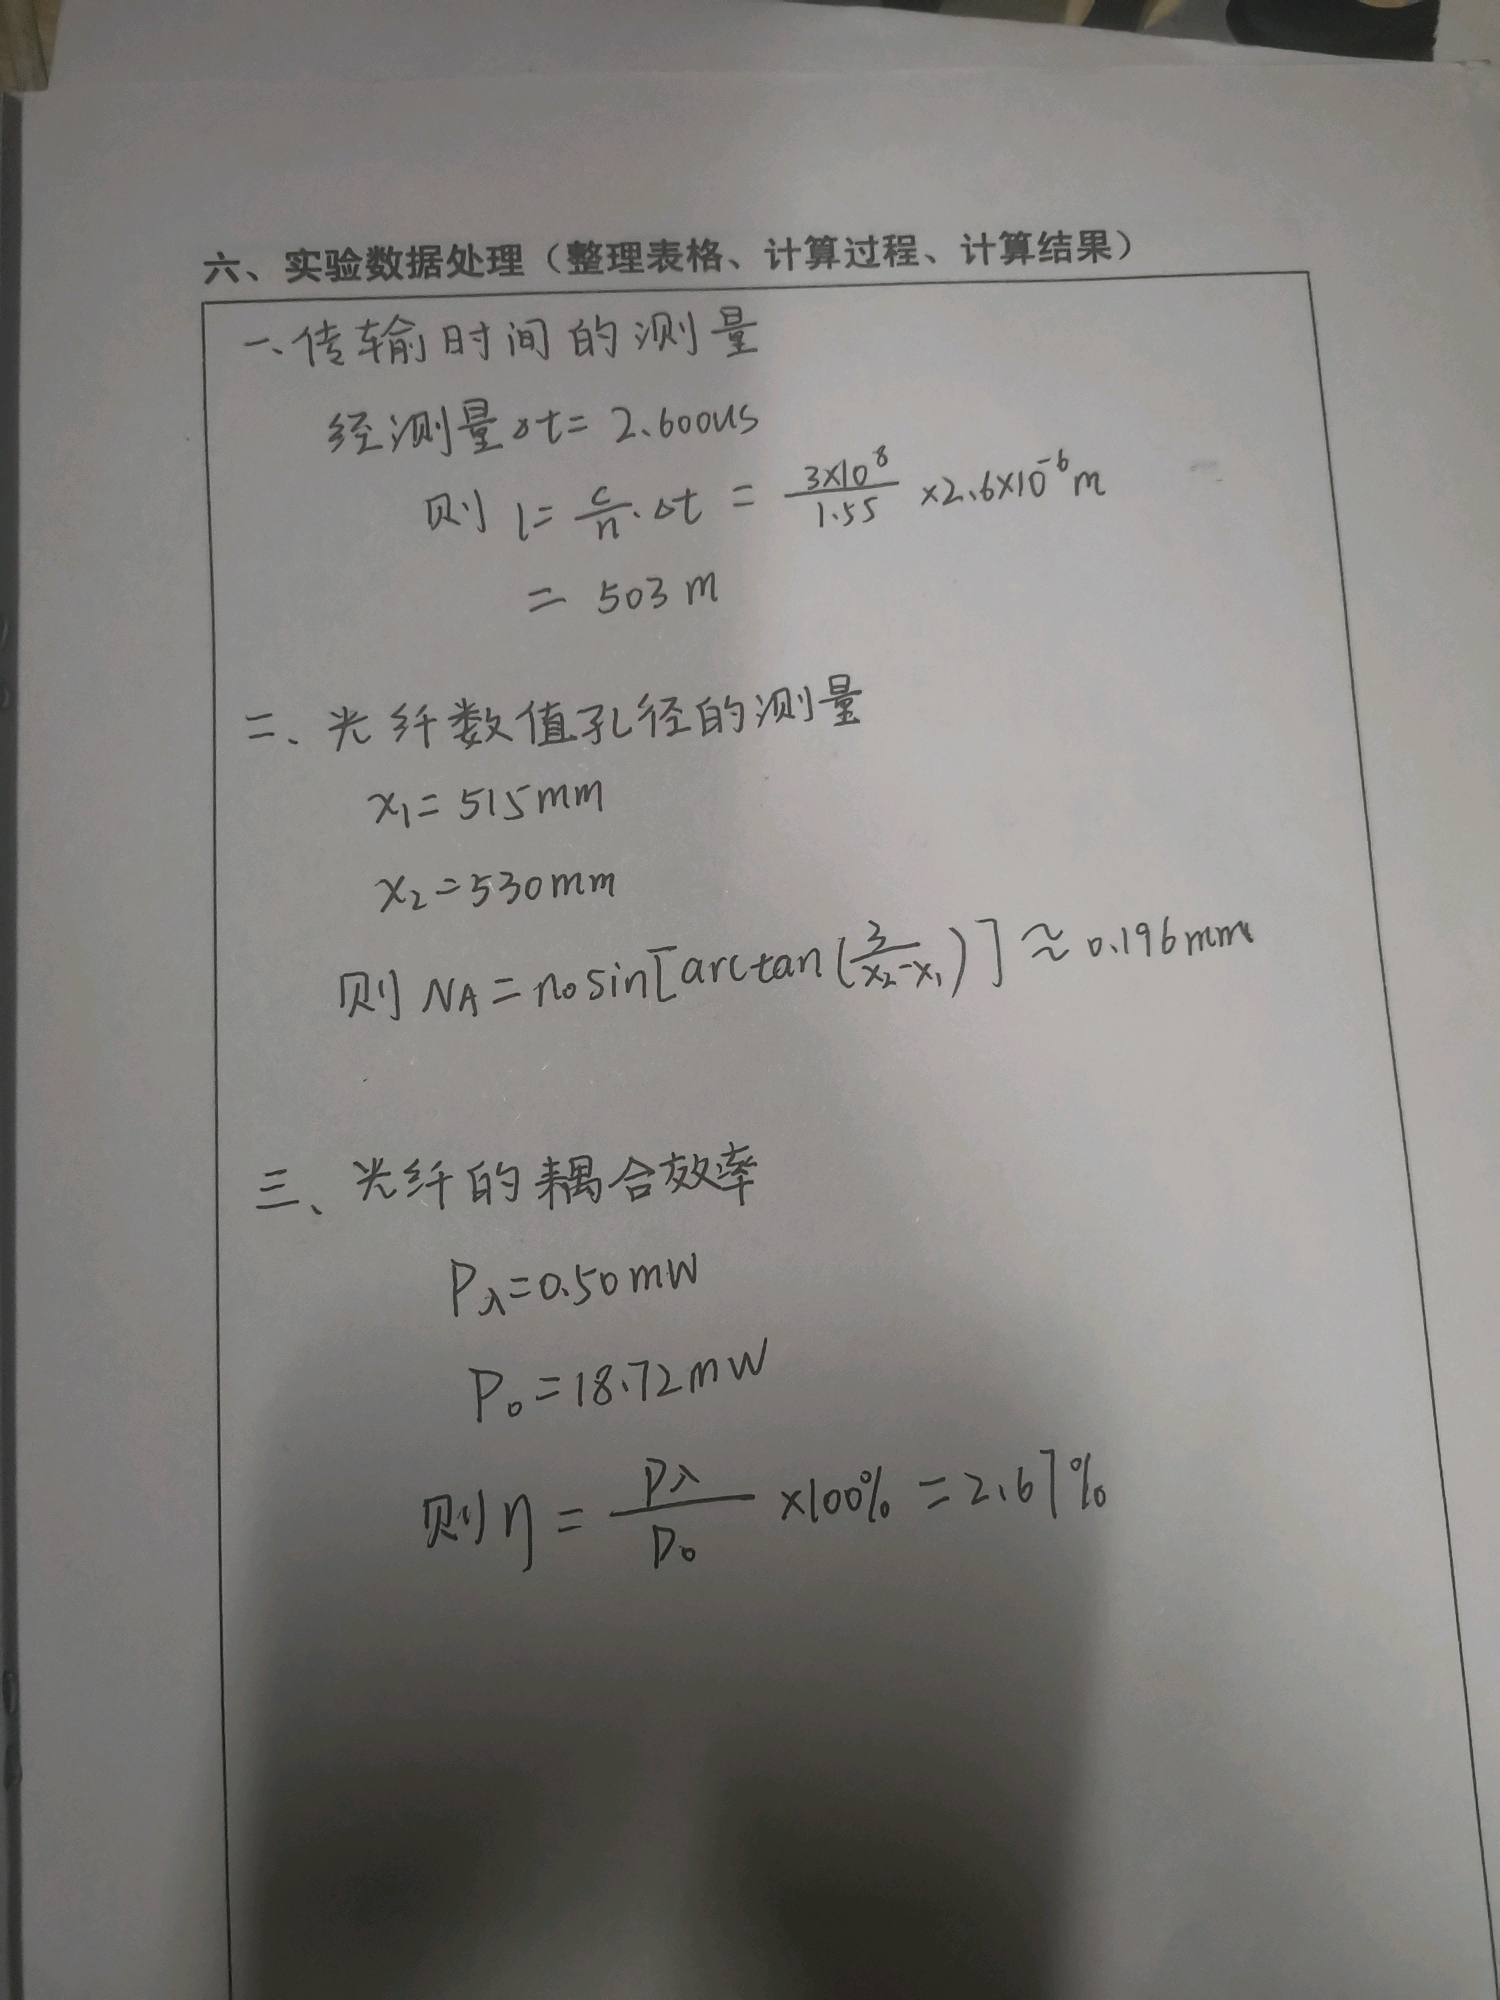 六、实验数据处理（整理表格、计算过程、计算结果）
一、传输时间的测量
经测量Δt=2.600us
则 l=c/n·Δt = 3×10⁸/1.55 ×2.6×10⁻⁶m
= 503m
二、光纤数值孔径的测量
x₁=515mm
x₂=530mm
则 NA=n₀sin[arctan(3/x₂-x₁)]≈0.196mm
三、光纤的耦合效率
Pλ=0.50mW
P₀=18.72mW
则η= Pλ/P₀ ×100% =2.67%